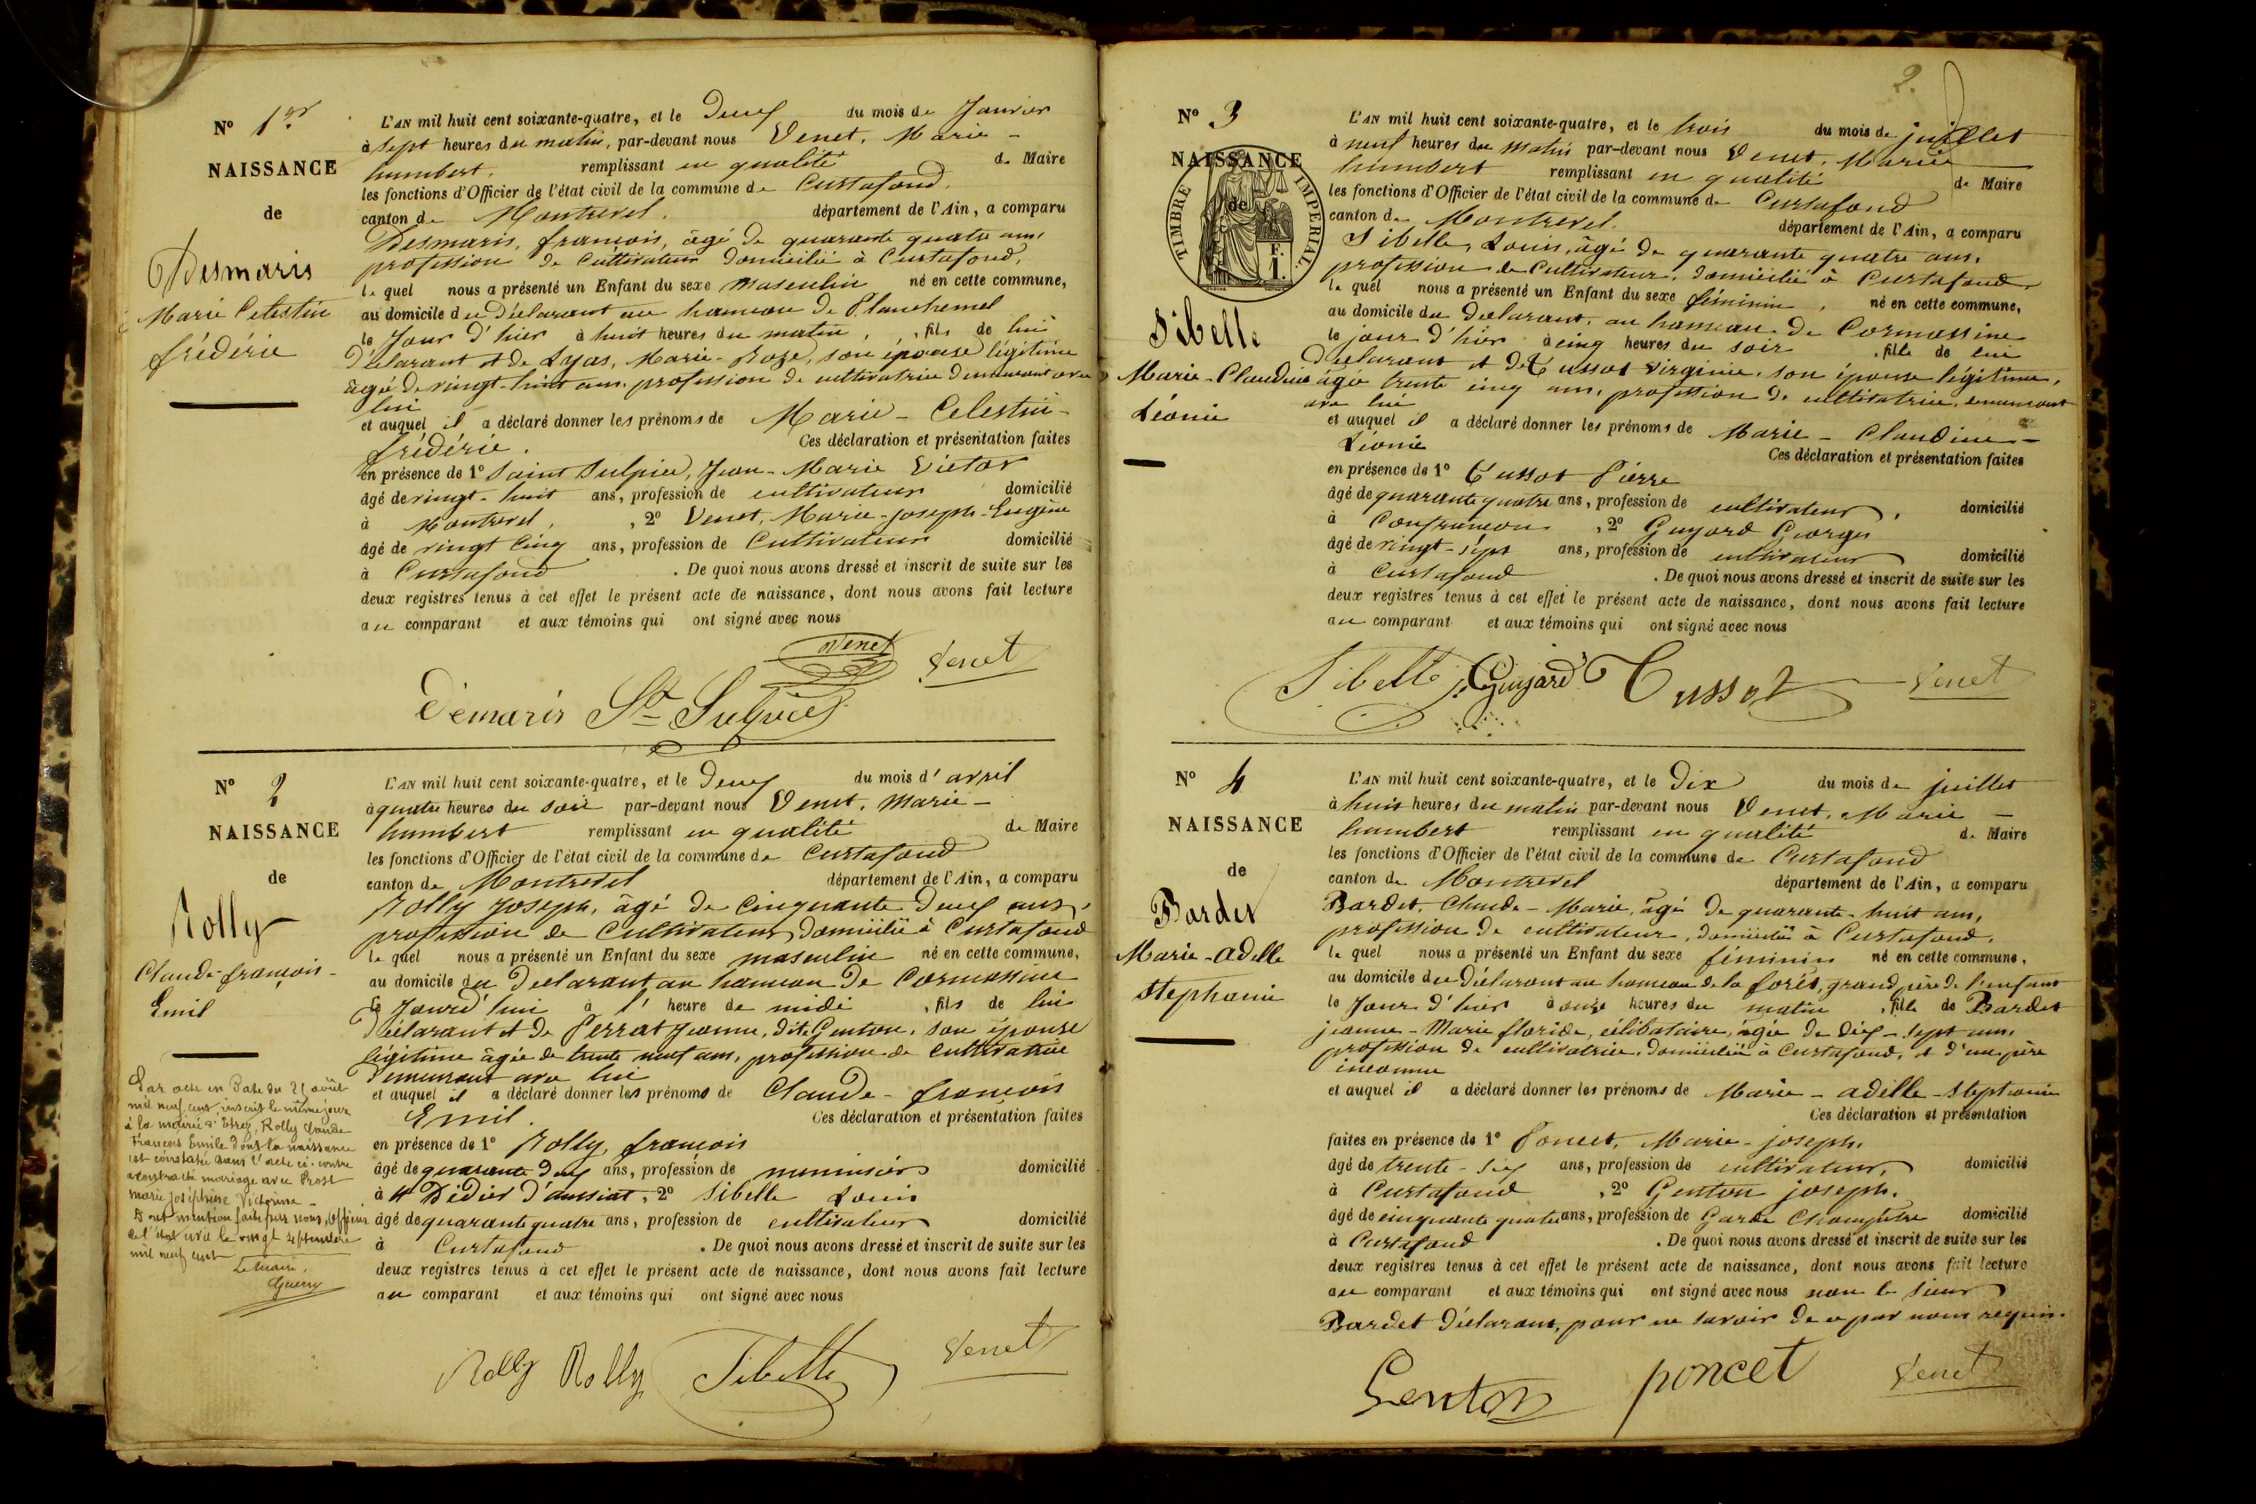 N° 1er
NAISSANCE
de
Desmaris
Marie Celestin
frédéric
L'AN mil huit cent soixante-quatre, et le Deux du mois de Janvier
à sept heures du matin, par-devant nous Venet, Marie -
humbert. remplissant en qualité de Maire
les fonctions d'Officier de l'état civil de la commune de Curtafond.
canton de Montrevel. département de l'Ain, a comparu
Desmaris, françois, âgé de quarante quatre ans,
profession de Cultivateur domicilié à Curtafond,
le quel nous a présenté un Enfant du sexe masculin né en cette commune,
au domicile du Déclarant au hameau de Planchemel
le Jour d'hier à huit heures du matin, fils de lui
Déclarant et de Lyas, Marie-Roze, son épouse légitime
âgée de vingt-huit ans, profession de cultivatrice demeurant avec
lui
et auquel il a déclaré donner les prénoms de Marie - Celestin -
frédéric. Ces déclaration et présentation faites
en présence de 1° Saint Sulpice, Jean-Marie Victor
âgé de vingt-huit ans, profession de cultivateur domicilié
à Montrevel, , 2° Venet, Marie-joseph-Eugène
âgé de vingt Cinq ans, profession de Cultivateur domicilié
à Curtafond . De quoi nous avons dressé et inscrit de suite sur les
deux registres tenus à cet effet le présent acte de naissance, dont nous avons fait lecture
au comparant et aux témoins qui ont signé avec nous
Venet Venet
Démaris St Sulpice
N° 2
NAISSANCE
de
Rolly
Claude-françois-
Emil
L'AN mil huit cent soixante-quatre, et le Deux du mois d'avril
à quatre heures du soir par-devant nous Venet, Marie -
humbert remplissant en qualité de Maire
les fonctions d'Officier de l'état civil de la commune de Curtafond
canton de Montrevel département de l'Ain, a comparu
Rolly Joseph, âgé de Cinquante Deux ans,
profession de Cultivateur, domicilié à Curtafond
le quel nous a présenté un Enfant du sexe masculin né en cette commune,
au domicile du Déclarant au hameau de Cormassine
le Jourd'hui à l'heure de midi , fils de lui
Déclarant et de Perrat Jeanne, dite Genton, son épouse
légitime âgée de trente neuf ans, profession de Cultivatrice
Demeurant avec lui
et auquel il a déclaré donner les prénoms de Claude - françois
Emil. Ces déclaration et présentation faites
en présence de 1° Rolly, françois
âgé de quarante Deux ans, profession de menuisier domicilié
à St Didier d'aussiat, 2° Sibelle Louis
âgé de quarante quatre ans, profession de cultivateur domicilié
à Curtafond . De quoi nous avons dressé et inscrit de suite sur les
deux registres tenus à cet effet le présent acte de naissance, dont nous avons fait lecture
au comparant et aux témoins qui ont signé avec nous
Par acte en Date du 21 août
mil neuf cent, inscrit le même jour
à la mairie d'Etrez, Rolly Claude
François Emile dont la naissance
est constatée dans l'acte ci-contre
a contracté mariage avec Prost
marie joséphine Victorine
Dont mention faite par nous, officier
de l'état civil le vingt septembre
mil neuf cent
Le maire,
Guerry
Rolly Rolly Sibelle Venet
2.
N° 3
NAISSANCE
de
TIMBRE IMPERIAL
F.
1.
Sibelle
Marie-Claudine
Léonie
L'AN mil huit cent soixante-quatre, et le trois du mois de juillet
à neuf heures du matin par-devant nous Venet, Marie
humbert remplissant en qualité de Maire
les fonctions d'Officier de l'état civil de la commune de Curtafond
canton de Montrevel. département de l'Ain, a comparu
Sibelle, Louis, âgé de quarante quatre ans,
profession de Cultivateur, domicilié à Curtafond,
le quel nous a présenté un Enfant du sexe féminin, né en cette commune,
au domicile du déclarant, au hameau de Cormassine
le jour d'hier à cinq heures du soir , fille de lui
Déclarant et de Tussot Virginie, son épouse légitime,
âgée trente cinq ans, profession de cultivatrice, demeurant
avec lui
et auquel il a déclaré donner les prénoms de Marie - Claudine -
Léonie Ces déclaration et présentation faites
en présence de 1° Tussot Pierre
âgé de quarante quatre ans, profession de cultivateur, domicilié
à Confrançon , 2° Guyard Georges
âgé de vingt-sept ans, profession de cultivateur domicilié
à Curtafond . De quoi nous avons dressé et inscrit de suite sur les
deux registres tenus à cet effet le présent acte de naissance, dont nous avons fait lecture
au comparant et aux témoins qui ont signé avec nous
Sibelle Guyard Tussot Venet
N° 4
NAISSANCE
de
Bardet
Marie-adelle
stephanie
L'AN mil huit cent soixante-quatre, et le Dix du mois de juillet
à huit heures du matin par-devant nous Venet, Marie -
humbert remplissant en qualité de Maire
les fonctions d'Officier de l'état civil de la commune de Curtafond
canton de Montrevel département de l'Ain, a comparu
Bardet, Claude-Marie, âgé de quarante-huit ans,
profession de cultivateur, domicilié à Curtafond,
le quel nous a présenté un Enfant du sexe féminin né en cette commune,
au domicile du Déclarant au hameau de la forêt, grand père de l'enfant
le Jour d'hier à onze heures du matin , fille de Bardet
jeanne-Marie floride, célibataire, âgée de Dix-sept ans,
profession de cultivatrice, domiciliée à Curtafond, et d'un père
inconnu
et auquel il a déclaré donner les prénoms de Marie - adelle - stephanie
Ces déclaration et présentation
faites en présence de 1° Poncet, Marie-joseph,
âgé de trente-six ans, profession de cultivateur, domicilié
à Curtafond , 2° Genton joseph,
âgé de cinquante quatre ans, profession de Garde Champêtre domicilié
à Curtafond . De quoi nous avons dressé et inscrit de suite sur les
deux registres tenus à cet effet le présent acte de naissance, dont nous avons fait lecture
au comparant et aux témoins qui ont signé avec nous non le sieur
Bardet Déclarant, pour ne savoir de ce par nous requis.
Genton poncet Venet